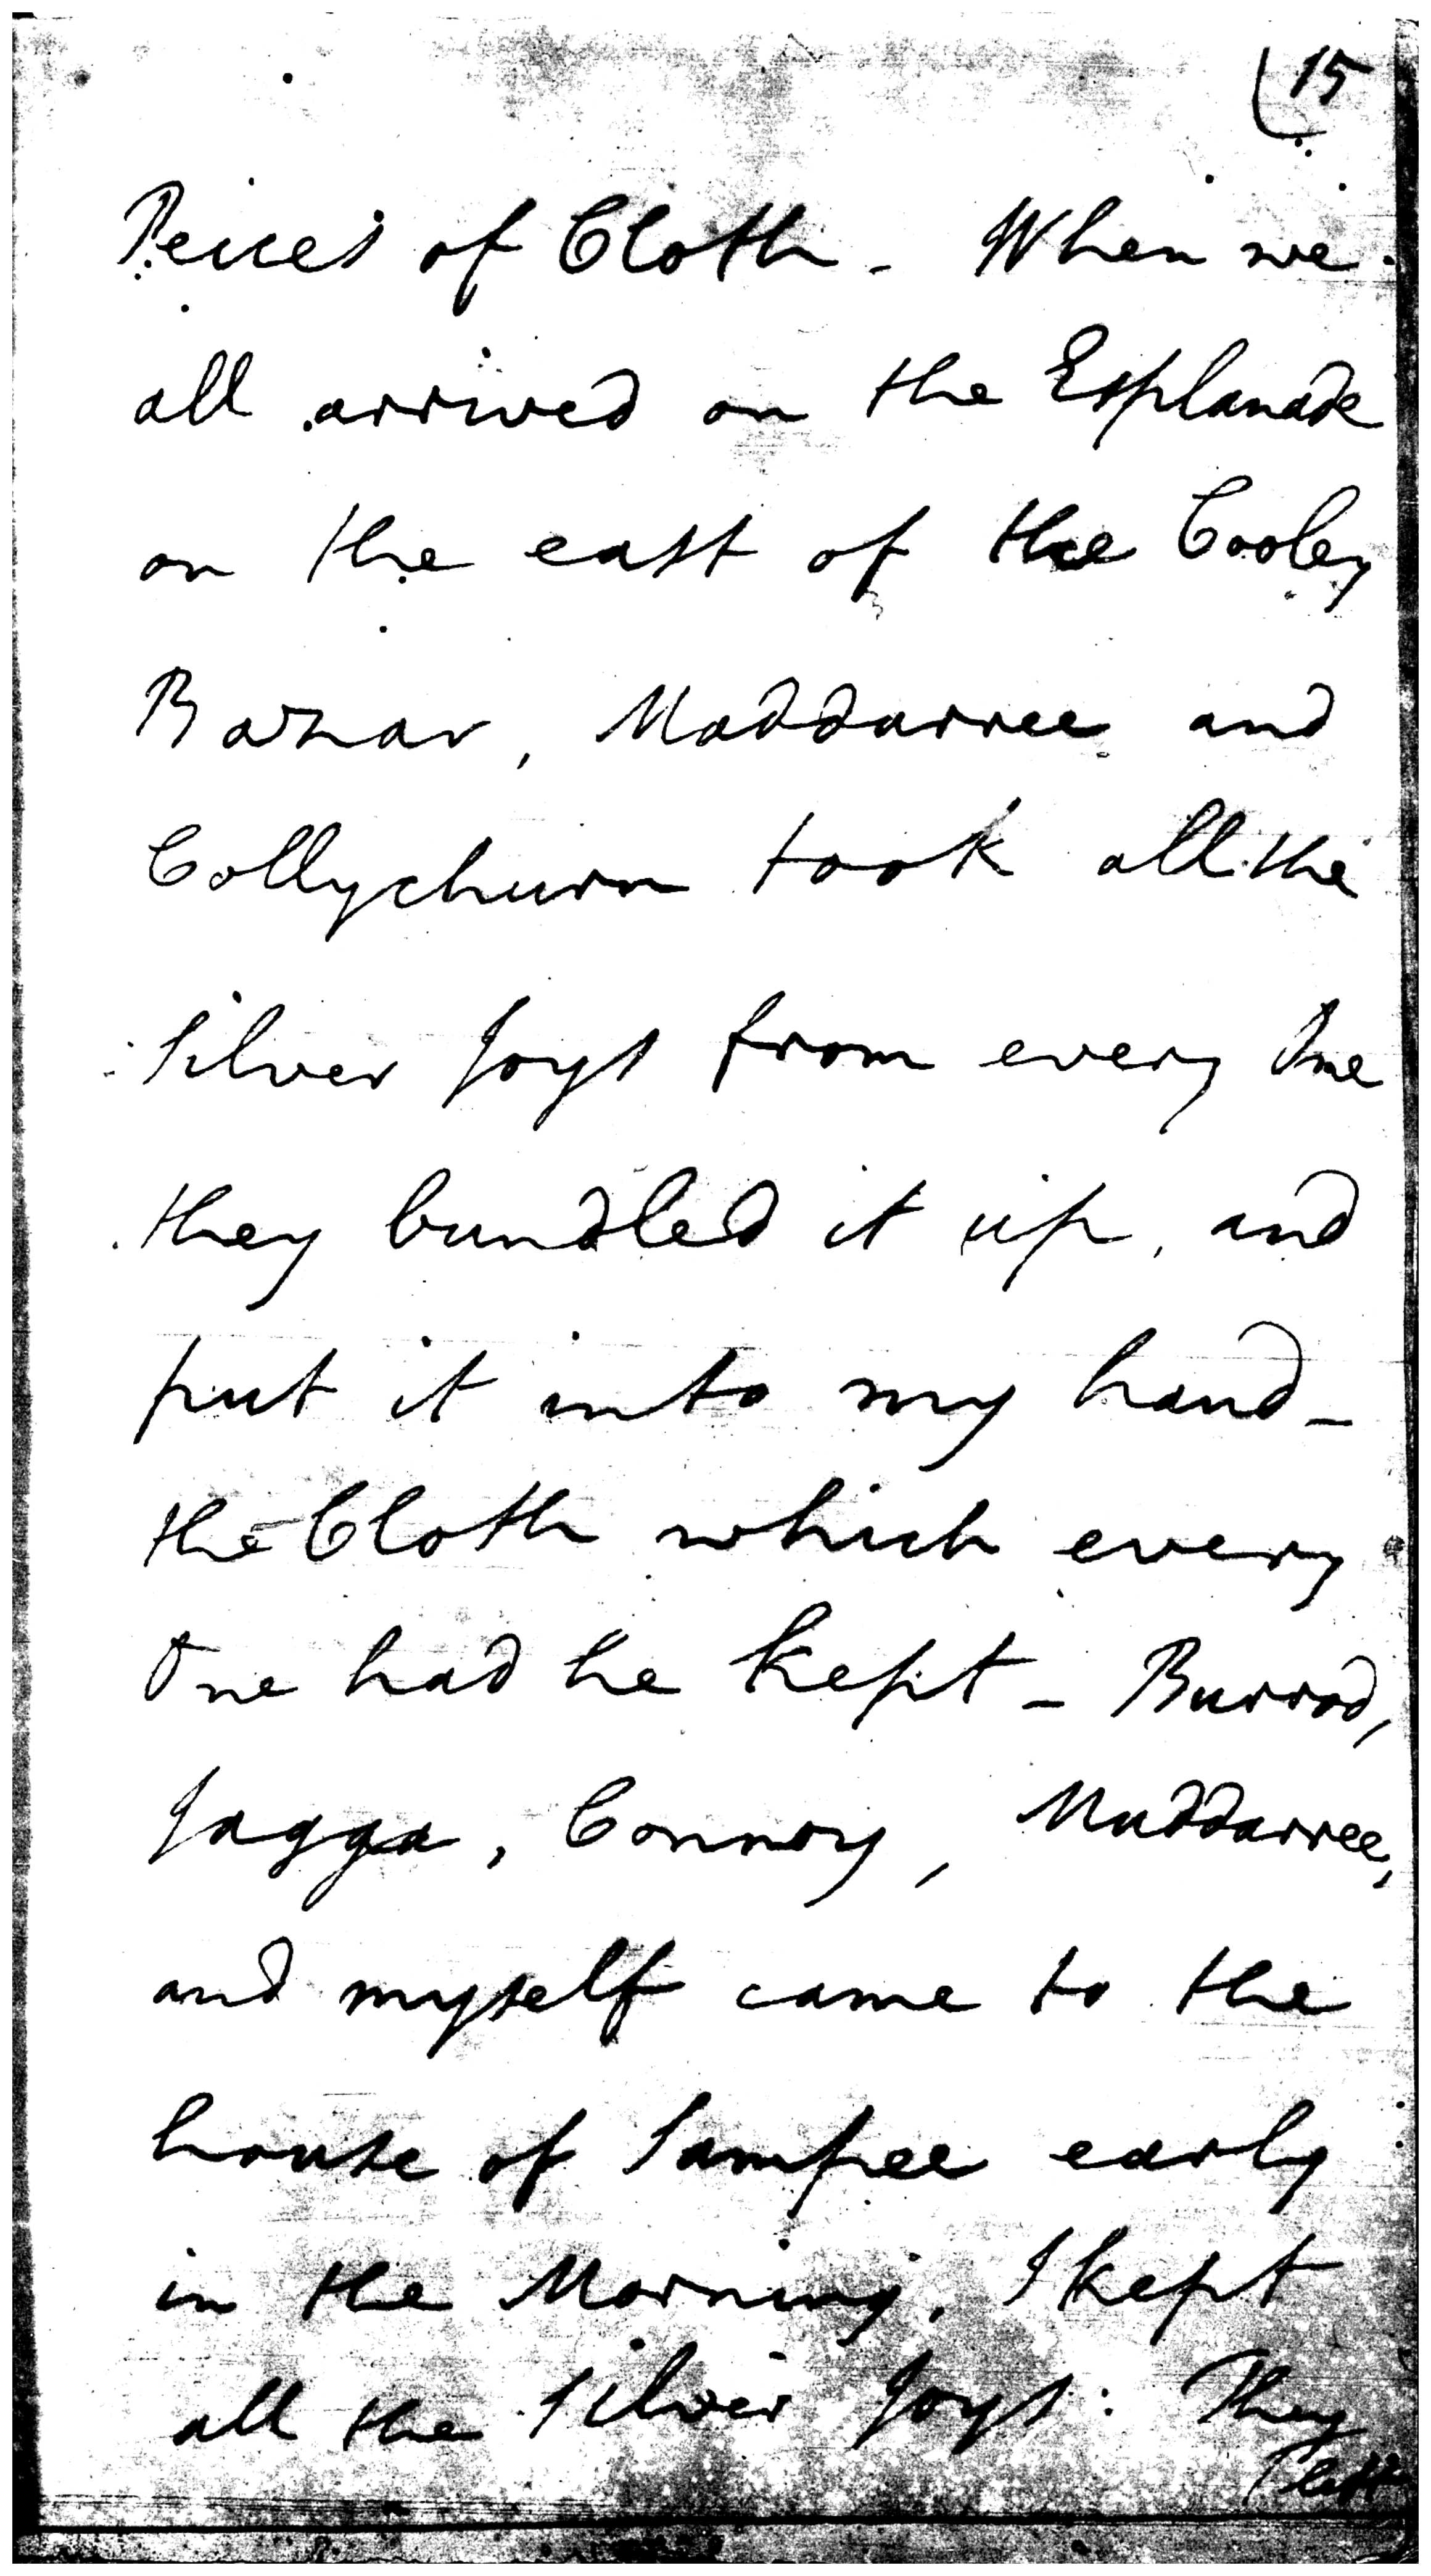 15
Peices of Cloth - When we
all arrived on the Esplanade
on the east of the Cooley
Bazar, Maddarree and
Collychurn took all the
Silver Joys from every One
they bundled it up, and
put it into my hand -
the Cloth which every
One had he kept - Burrod,
Jagga, Connoy, Muddarree,
and myself came to the
house of Sampee early
in the Morning, I kept
all the Silver Joys: They
left